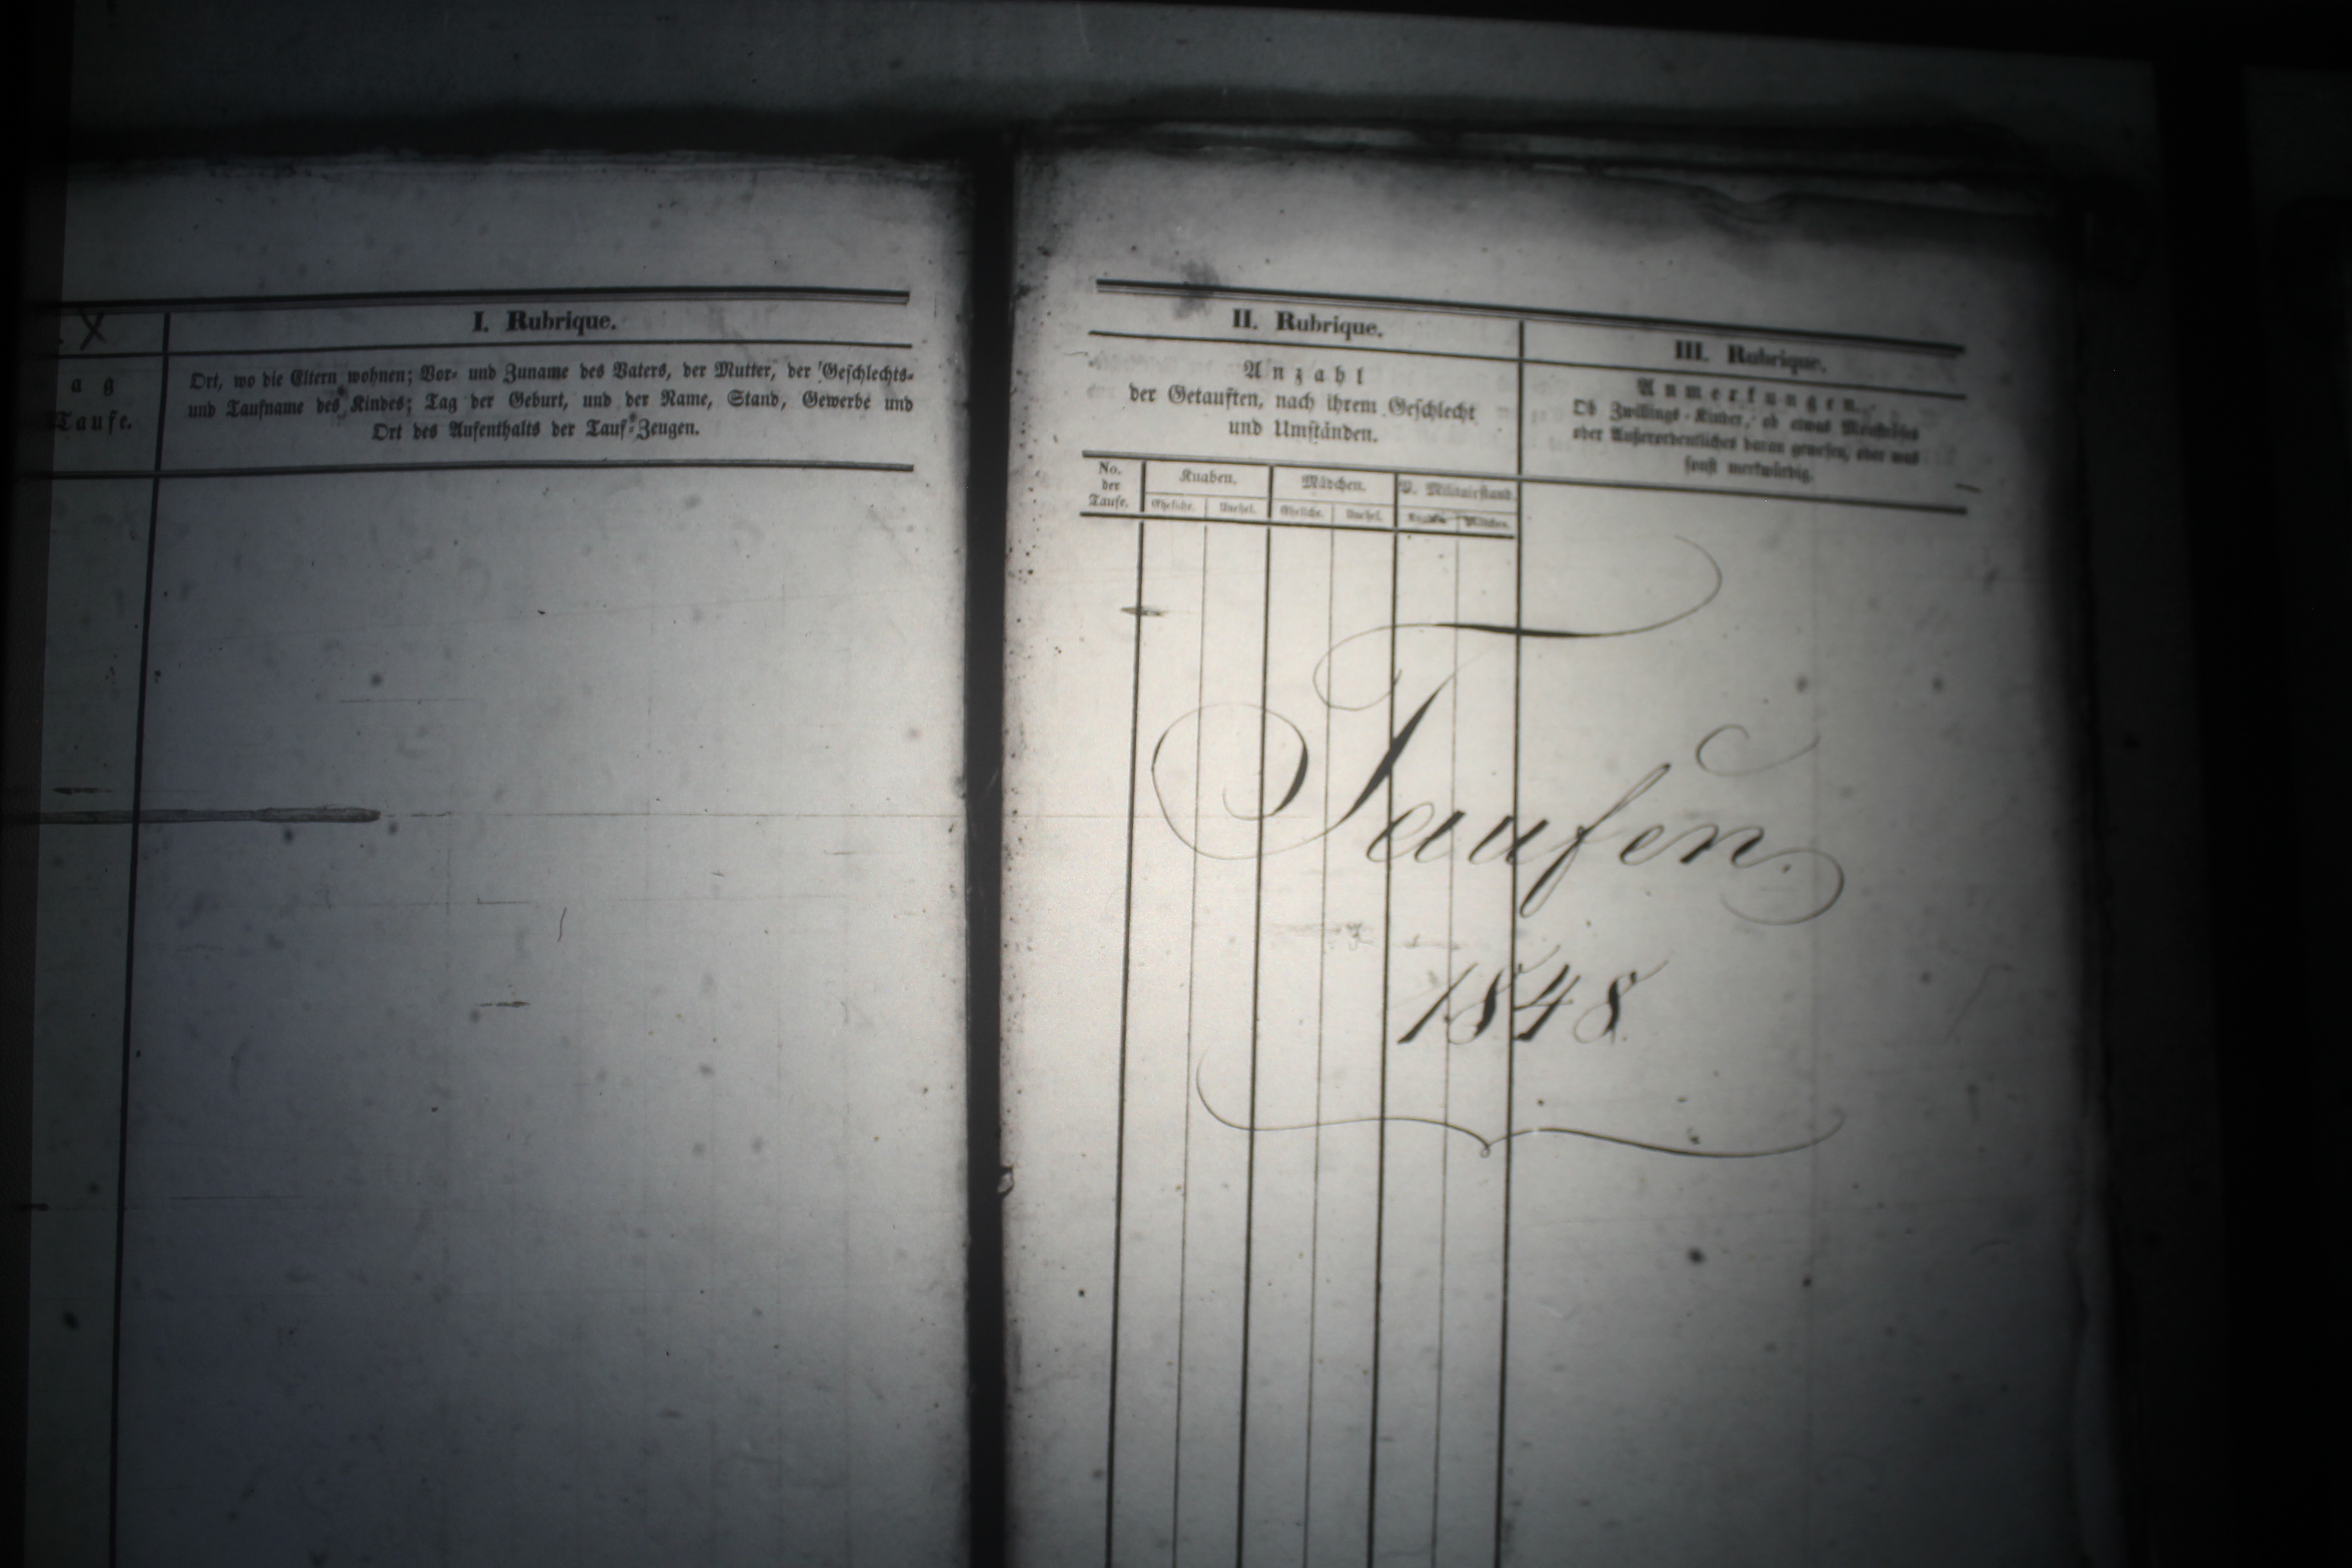 X
I. Rubrique.
a g
Taufe.
Ort, wo die Eltern wohnen; Vor- und Zuname des Vaters, der Mutter, der Geschlechts-
und Taufname des Kindes; Tag der Geburt, und der Name, Stand, Gewerbe und
Ort des Aufenthalts der Tauf-Zeugen.
II. Rubrique.
Anzahl
der Getauften, nach ihrem Geschlecht
und Umständen.
No.
der
Taufe.
Knaben.
Mädchen.
V. Militairstand.
Eheliche. Unehel. Eheliche. Unehel. Knaben Mädchen.
III. Rubrique.
Anmerkungen.
Ob Zwillings-Kinder, ob etwas
oder Außerordentliches daran gewesen, oder was
sonst merkwürdig.
Taufen.
1848